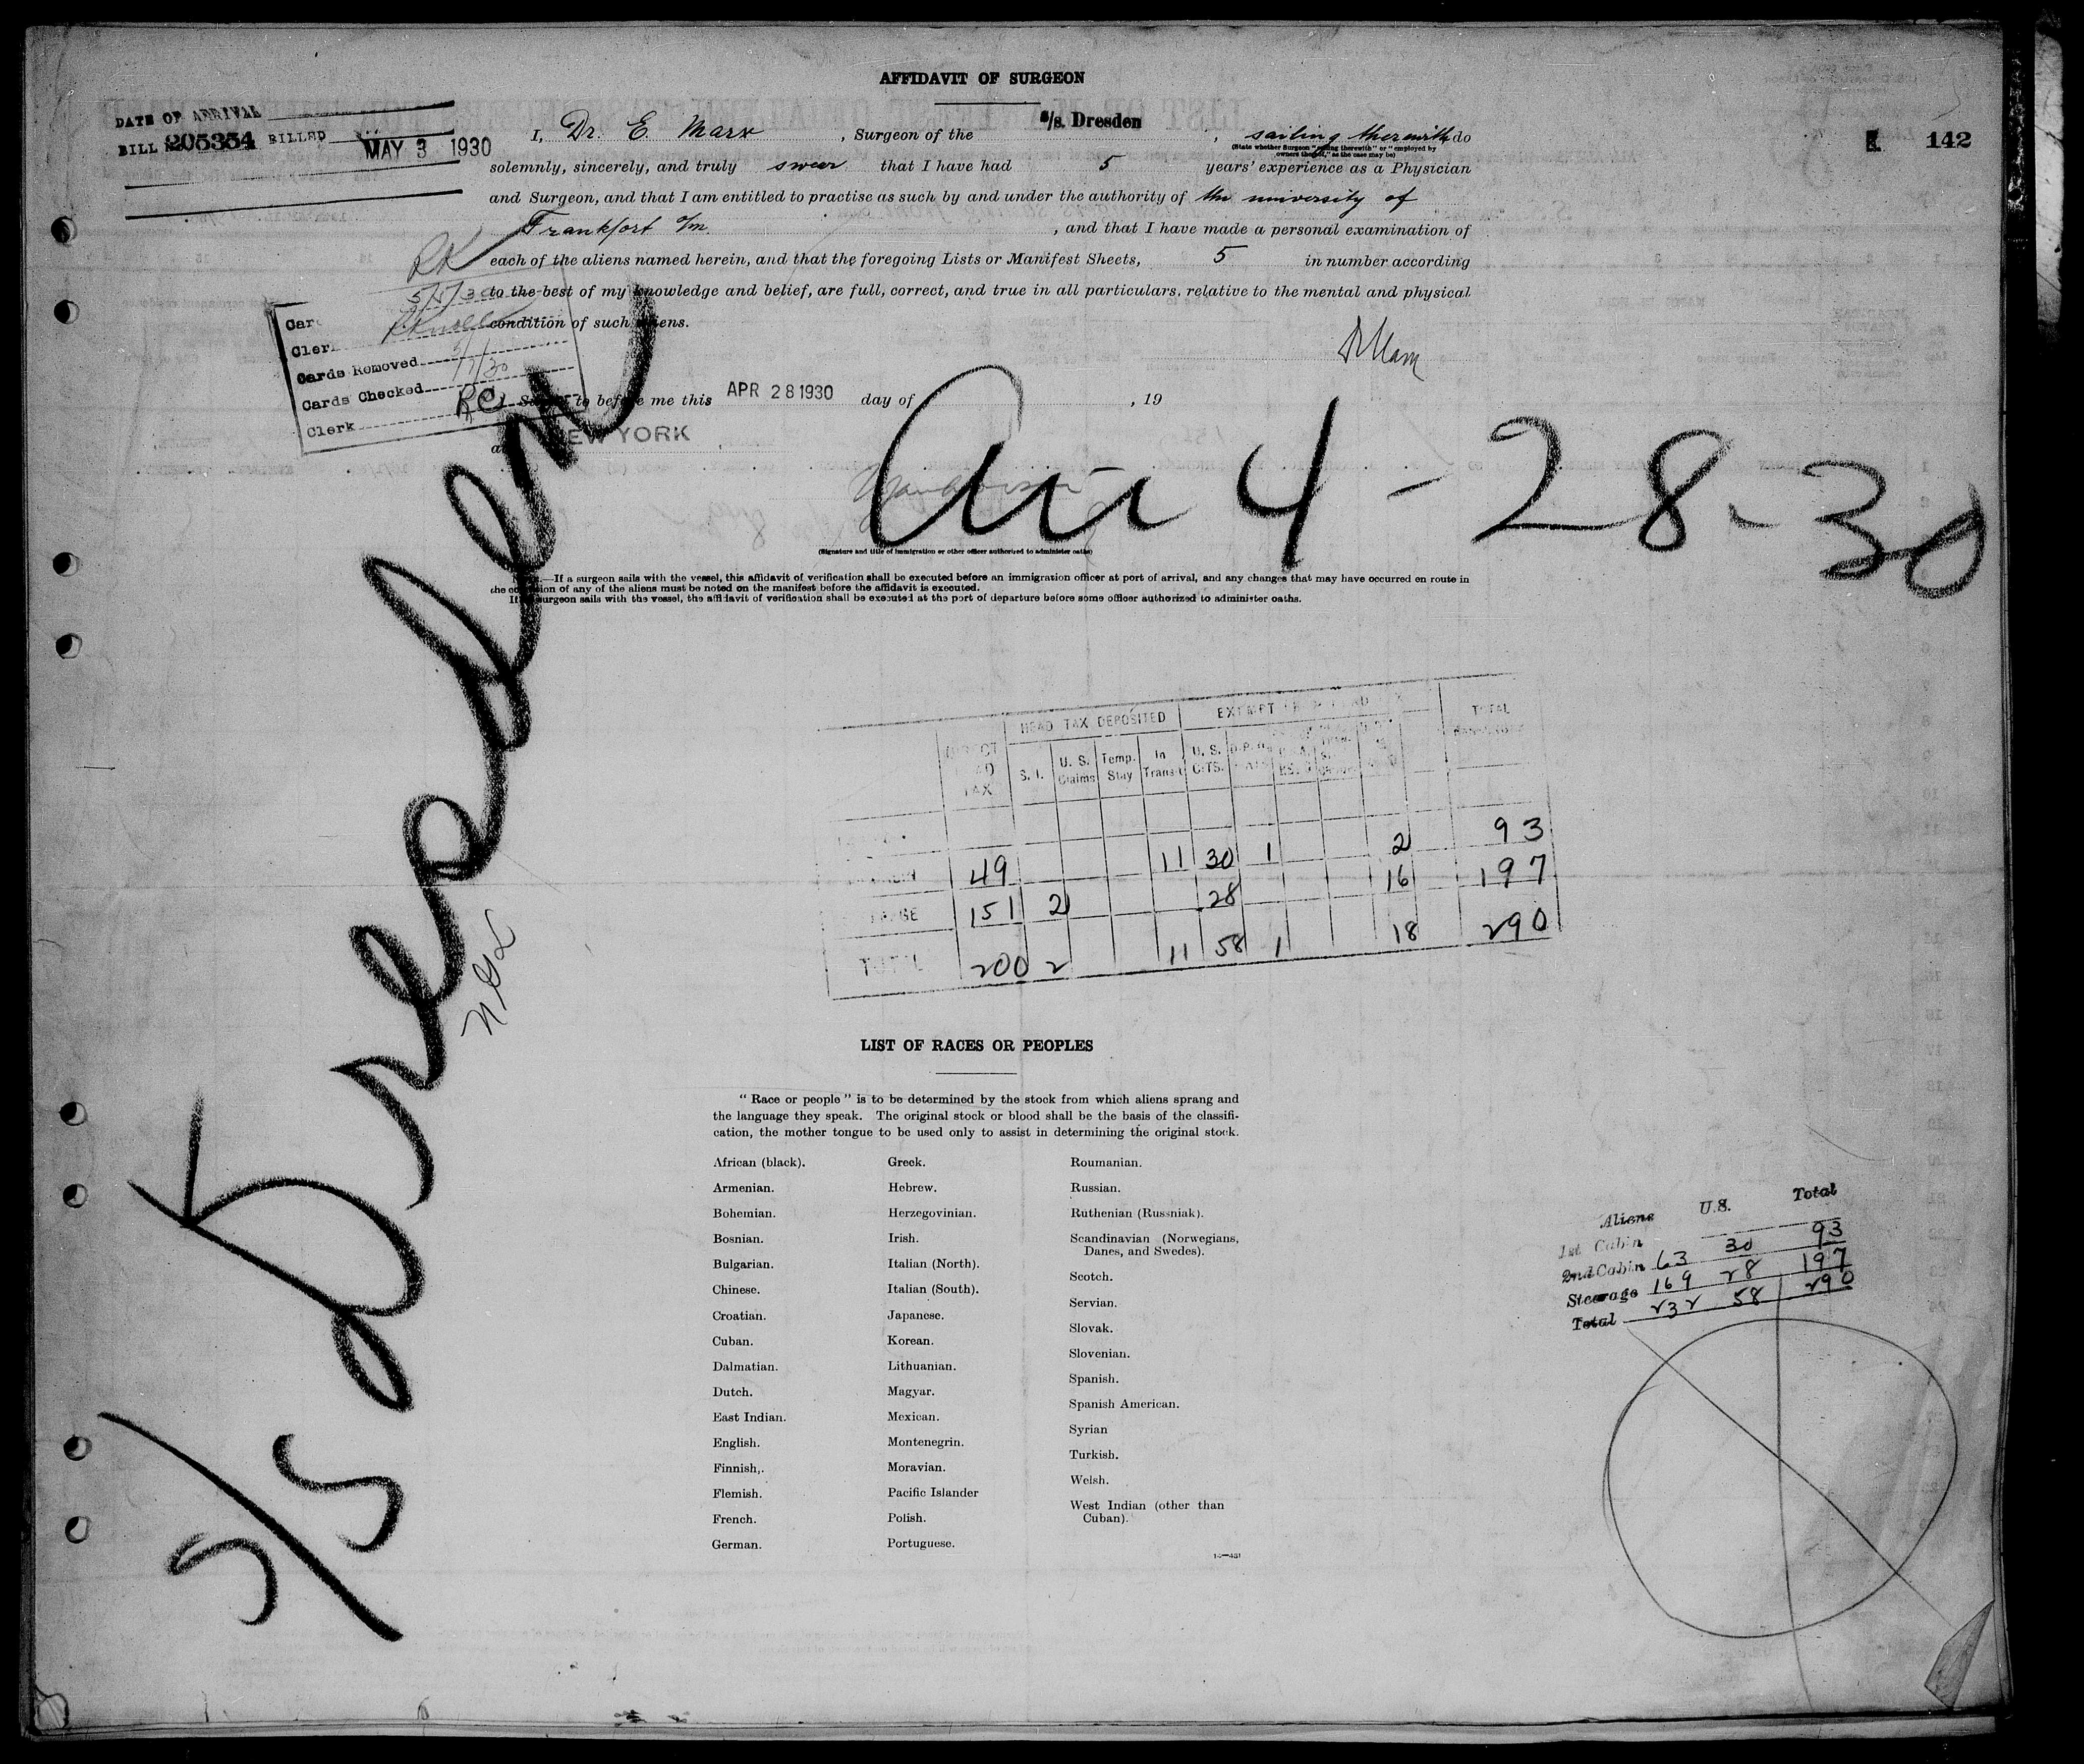 AFFIDAVIT OF SURGEON
DATE OF ARRIVAL
BILL No 205354 BILLED MAY 3 1930
142
I, Dr. E. Marx, Surgeon of the S/s. Dresden, sailing therewith do
(State whether Surgeon "sailing therewith" or "employed by
owners thereof," as the case may be)
solemnly, sincerely, and truly swear that I have had 5 years' experience as a Physician
and Surgeon, and that I am entitled to practise as such by and under the authority of the university of
Frankfort a/m., and that I have made a personal examination of
each of the aliens named herein, and that the foregoing Lists or Manifest Sheets, 5 in number according
to the best of my knowledge and belief, are full, correct, and true in all particulars, relative to the mental and physical
condition of such aliens.
RK
5/5/30
Car
Cler
Cards Removed 5/7/30
Cards Checked
Clerk RC
Sworn to before me this APR 28 1930 day of , 19
at NEW YORK
Arr 4-28-30
(Signature and title of immigration or other officer authorized to administer oaths)
.—If a surgeon sails with the vessel, this affidavit of verification shall be executed before an immigration officer at port of arrival, and any changes that may have occurred en route in
the condition of any of the aliens must be noted on the manifest before the affidavit is executed.
If surgeon sails with the vessel, the affidavit of verification shall be executed at the port of departure before some officer authorized to administer oaths.
S/S Dresden
HEAD TAX DEPOSITED EXEMPT TOTAL
TAX S. I. U. S. Claims Temp. Stay In Transit U. S. CITS.
49 11 30 1 2 93
151 2 28 16 197
TOTAL 200 2 11 58 1 18 290
LIST OF RACES OR PEOPLES
"Race or people" is to be determined by the stock from which aliens sprang and
the language they speak. The original stock or blood shall be the basis of the classifi-
cation, the mother tongue to be used only to assist in determining the original stock.
African (black).
Armenian.
Bohemian.
Bosnian.
Bulgarian.
Chinese.
Croatian.
Cuban.
Dalmatian.
Dutch.
East Indian.
English.
Finnish,.
Flemish.
French.
German.
Greek.
Hebrew.
Herzegovinian.
Irish.
Italian (North).
Italian (South).
Japanese.
Korean.
Lithuanian.
Magyar.
Mexican.
Montenegrin.
Moravian.
Pacific Islander
Polish.
Portuguese.
Roumanian.
Russian.
Ruthenian (Russniak).
Scandinavian (Norwegians,
Danes, and Swedes).
Scotch.
Servian.
Slovak.
Slovenian.
Spanish.
Spanish American.
Syrian
Turkish.
Welsh.
West Indian (other than
Cuban).
Aliens U.S. Total
1st Cabin
2nd Cabin 63 30 93
Steerage 169 28 197
Total 232 58 290